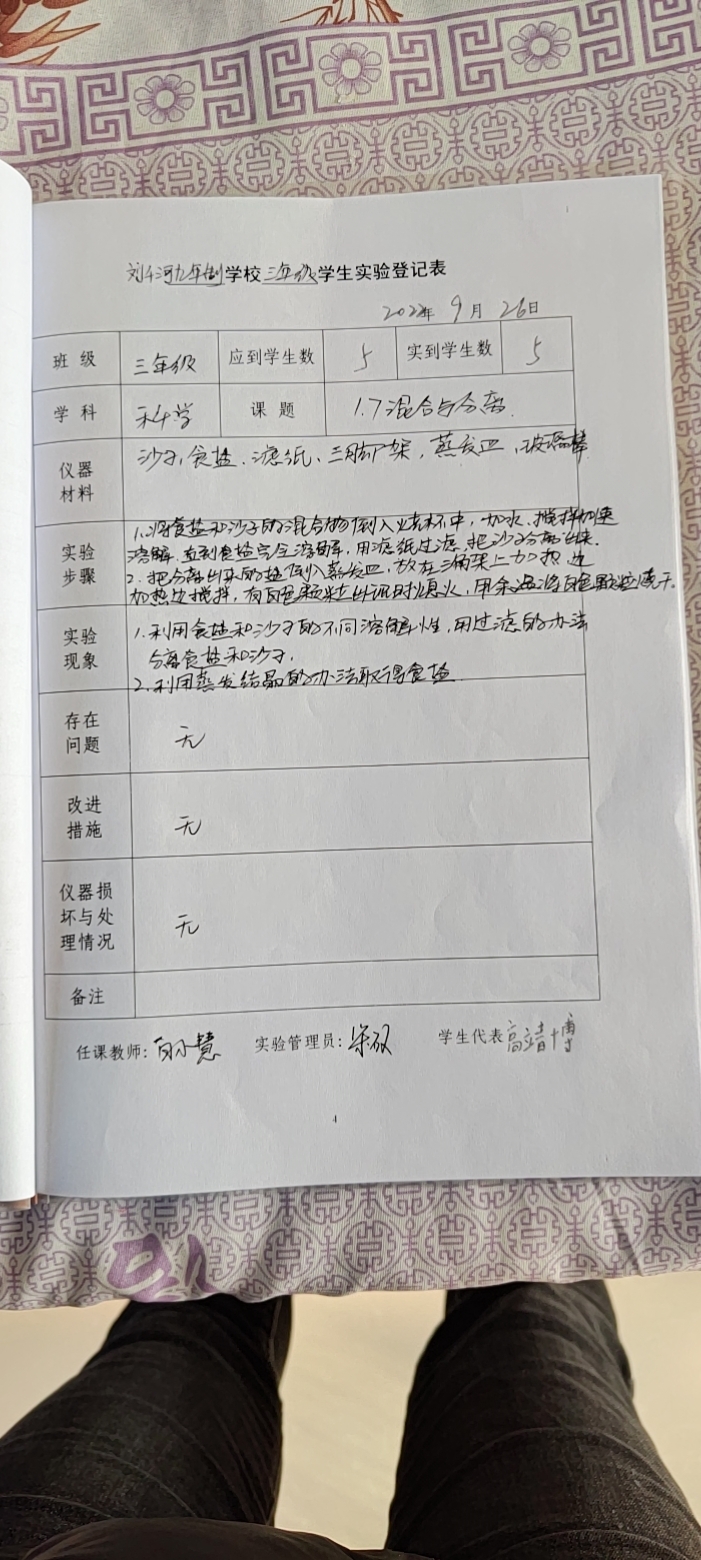 刘河九年制学校三年级学生实验登记表
2022年 9月 26日
班级 三年级 应到学生数 5 实到学生数 5
学科 科学 课题 1.7混合与分离
仪器材料 沙子,食盐、滤纸、三脚架,蒸发皿,玻璃棒
实验步骤 1.将食盐和沙子的混合物倒入烧杯中,加水、搅拌加速
溶解、直到食盐完全溶解,用滤纸过滤、把沙子分离出来.
2.把分离出来的盐倒入蒸发皿,放在三脚架上加热边
加热边搅拌,有白色颗粒出现时熄火,用余温将白色颗粒烤干.
实验现象 1.利用食盐和沙子的不同溶解性,用过滤的办法
分离食盐和沙子.
2.利用蒸发结晶的办法取得食盐
存在问题 无
改进措施 无
仪器损坏与处理情况 无
备注
任课教师:白小慧 实验管理员: 学生代表 高靖博
4